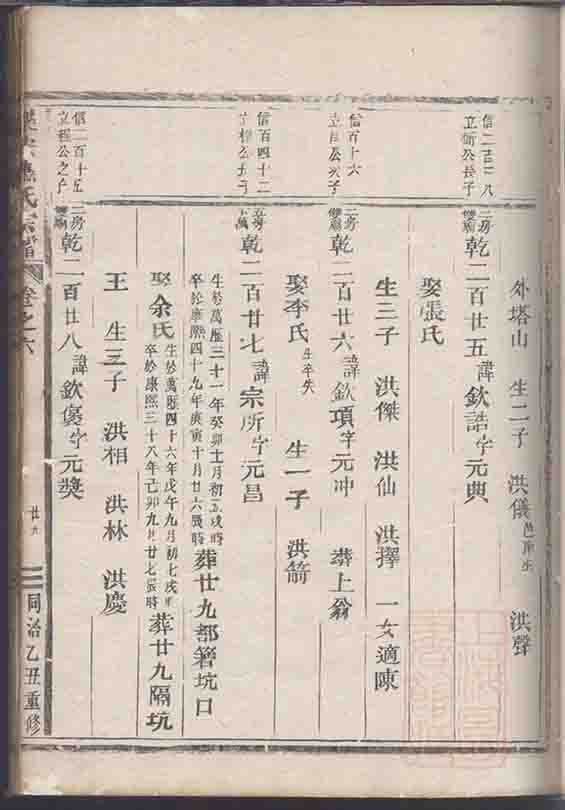 外塔山　生二子　洪儀邑庠生　洪聲
信二百十八
立衛公長子
三房
雙廟
乾二百廿五諱欽誥字元典
娶張氏
生三子　洪傑　洪仙　洪擇　一女適陳
信百十六
立自公次子
三房
雙廟
乾二百廿六諱欽項字元冲　葬上翁
娶李氏生卒失　生一子　洪箭
信百四十二
立程公長子
五房
下萬
乾二百廿七諱宗所字元昌
生於萬曆三十一年癸卯十月初五戌時
卒於康熙四十九年庚寅十月廿六戌時
葬廿九都箬坑口
娶余氏
生於萬曆四十六年戊午九月初七戌時
卒於康熙三十八年己卯九月廿七辰時
葬廿九隔坑
王　生三子　洪相　洪林　洪慶
信二百十五
立程公之子
三房
雙廟
乾二百廿八諱欽褒字元獎
氏宗譜　卷之六
同治乙丑重修
上海圖書館藏